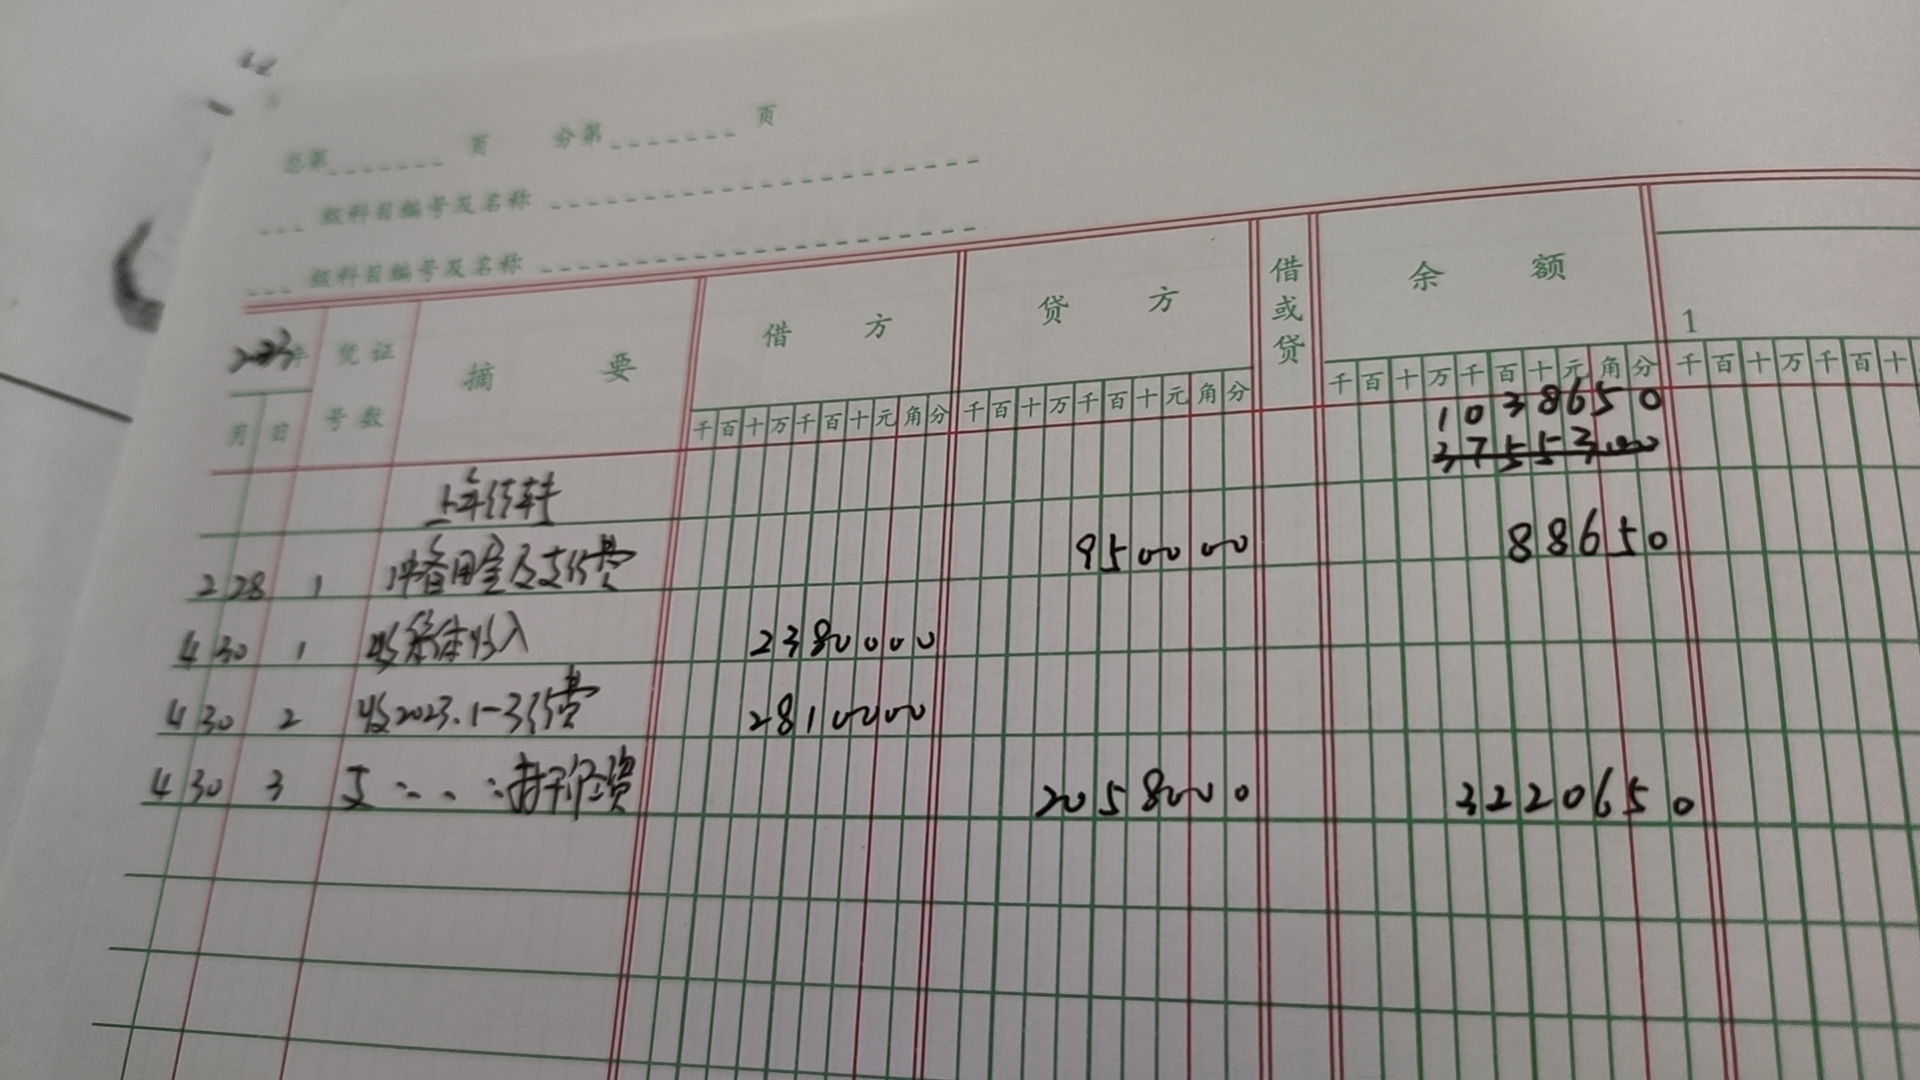 总第 页 分第 页
级科目编号及名称
级科目编号及名称
2023年 凭证号数 摘要 借方 贷方 借或贷 余额 1
月 日 千百十万千百十元角分 千百十万千百十元角分 千百十万千百十元角分 千百十万千百十
1038650
3755300
上年结转
2 28 1 冲备用金及支付费 950000 88650
4 30 1 收集体收入 2380000
4 30 2 收2023.1-3经费 2810000
4 30 3 支 2058000 3220650